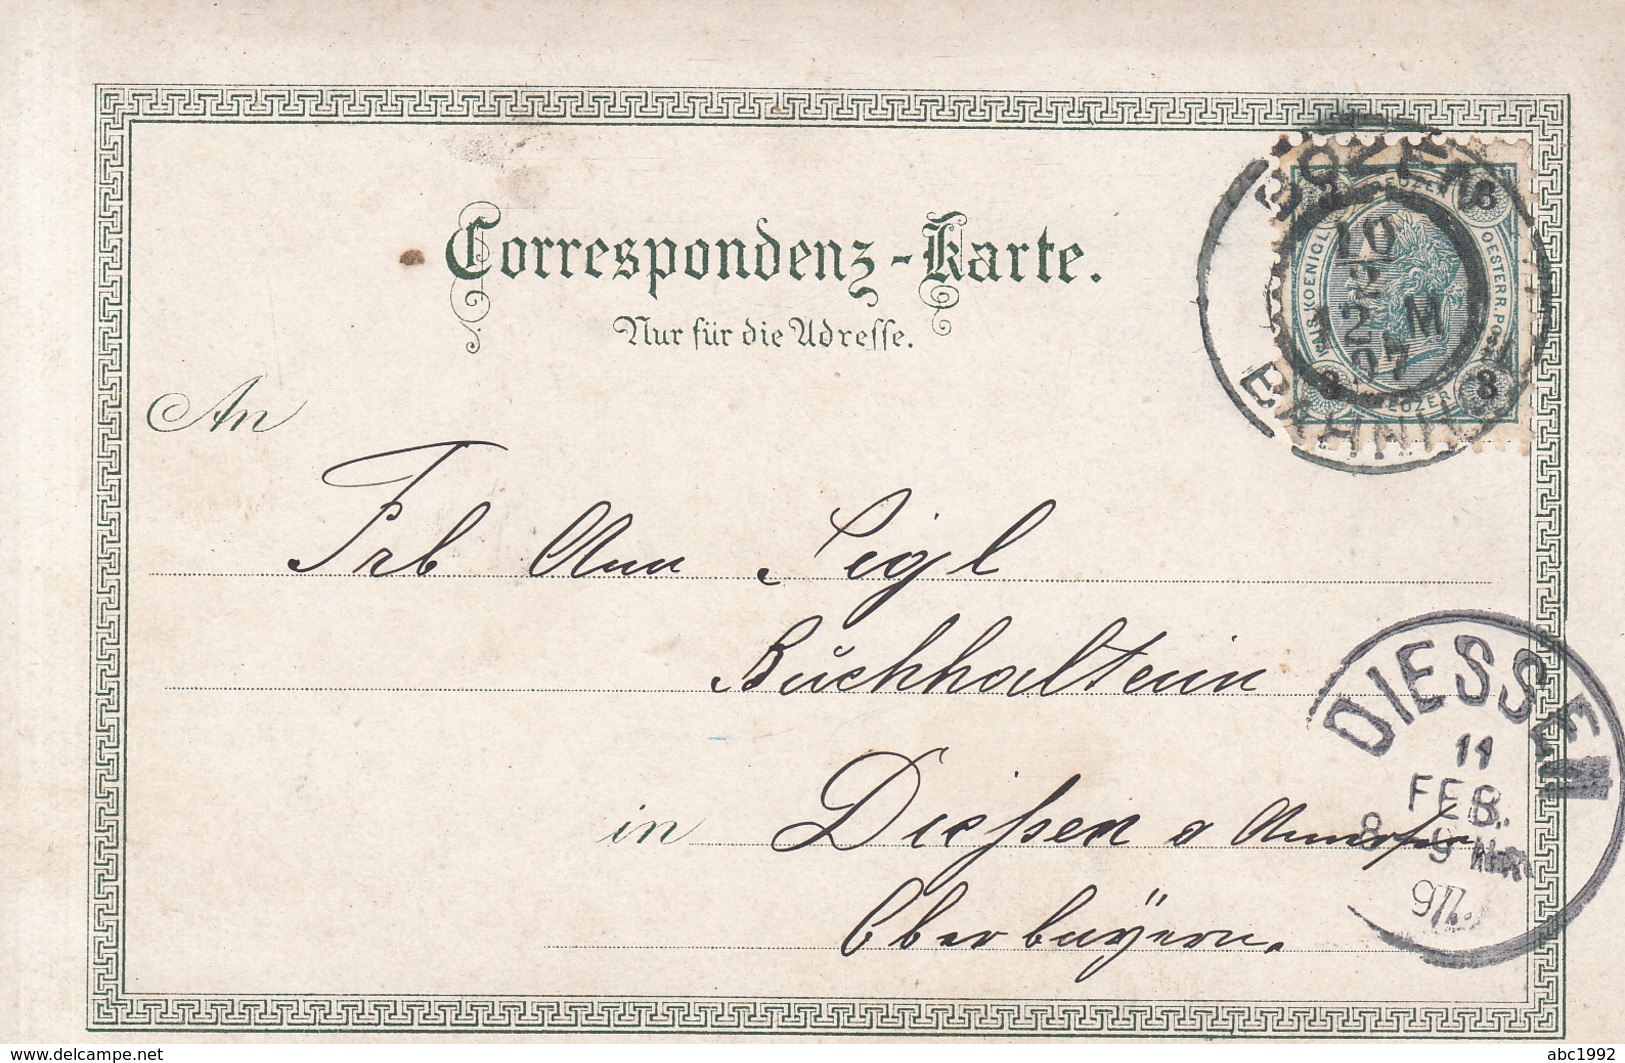 Correspondenz-Karte.
Nur für die Adresse.
BOZEN
10
2
12 M
97
BAHNHOF
KAIS. KOENIGL. OESTERR. POST
3 3 3
KREUZER
An
Frl Ann Sigl
Buchhalterin
in Dießen a Ammersee
Oberbayern.
DIESSEN
11
FEB.
8 - 9 NM
97.
www.delcampe.net
abc1992